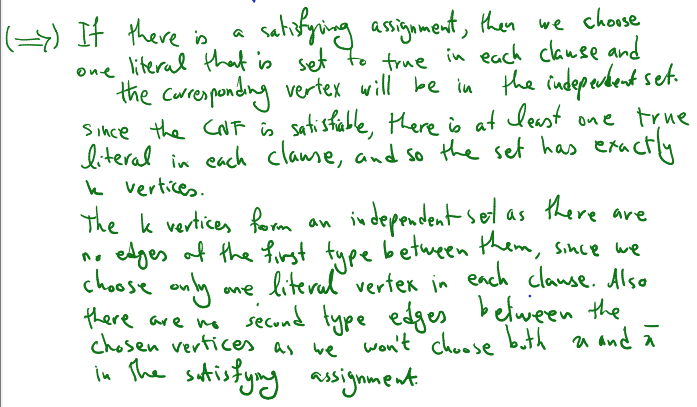 (⟹) If there is a satisfying assignment, then we choose
one literal that is set to true in each clause and
the corresponding vertex will be in the independent set.
Since the CNF is satisfiable, there is at least one true
literal in each clause, and so the set has exactly
k vertices.
The k vertices form an independent set as there are
no edges of the first type between them, since we
choose only one literal vertex in each clause. Also
there are no second type edges between the
chosen vertices as we won't choose both x and x̅
in the satisfying assignment.